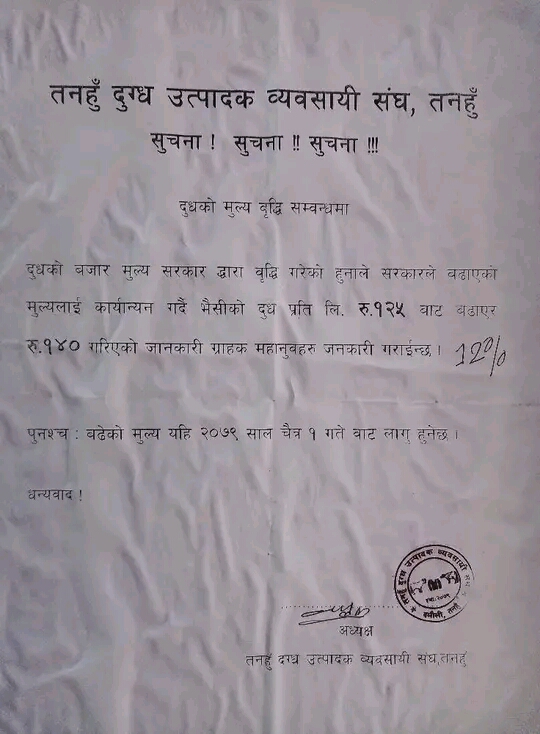 तनहुँ दुग्ध उत्पादक व्यवसायी संघ, तनहुँ
सुचना ! सुचना !! सुचना !!!
दुधको मुल्य वृद्धि सम्वन्धमा
दुधको बजार मुल्य सरकार द्धारा वृद्धि गरेको हुनाले सरकारले बढाएको
मुल्यलाई कार्यान्यन गर्दै भैसीको दुध प्रति लि. रु.१२५ वाट बढाएर
रु.१४० गरिएको जानकारी ग्राहक महानुबहरु जनकारी गराईन्छ । 12%
पुनश्च : वढेको मुल्य यहि २०७९ साल चैत्र १ गते वाट लागु हुनेछ ।
धन्यवाद !
तनहुँ दुग्ध उत्पादक व्यवसायी संघ
अध्यक्ष
तनहुँ दुग्ध उत्पादक व्यवसायी संघ,तनहुँ